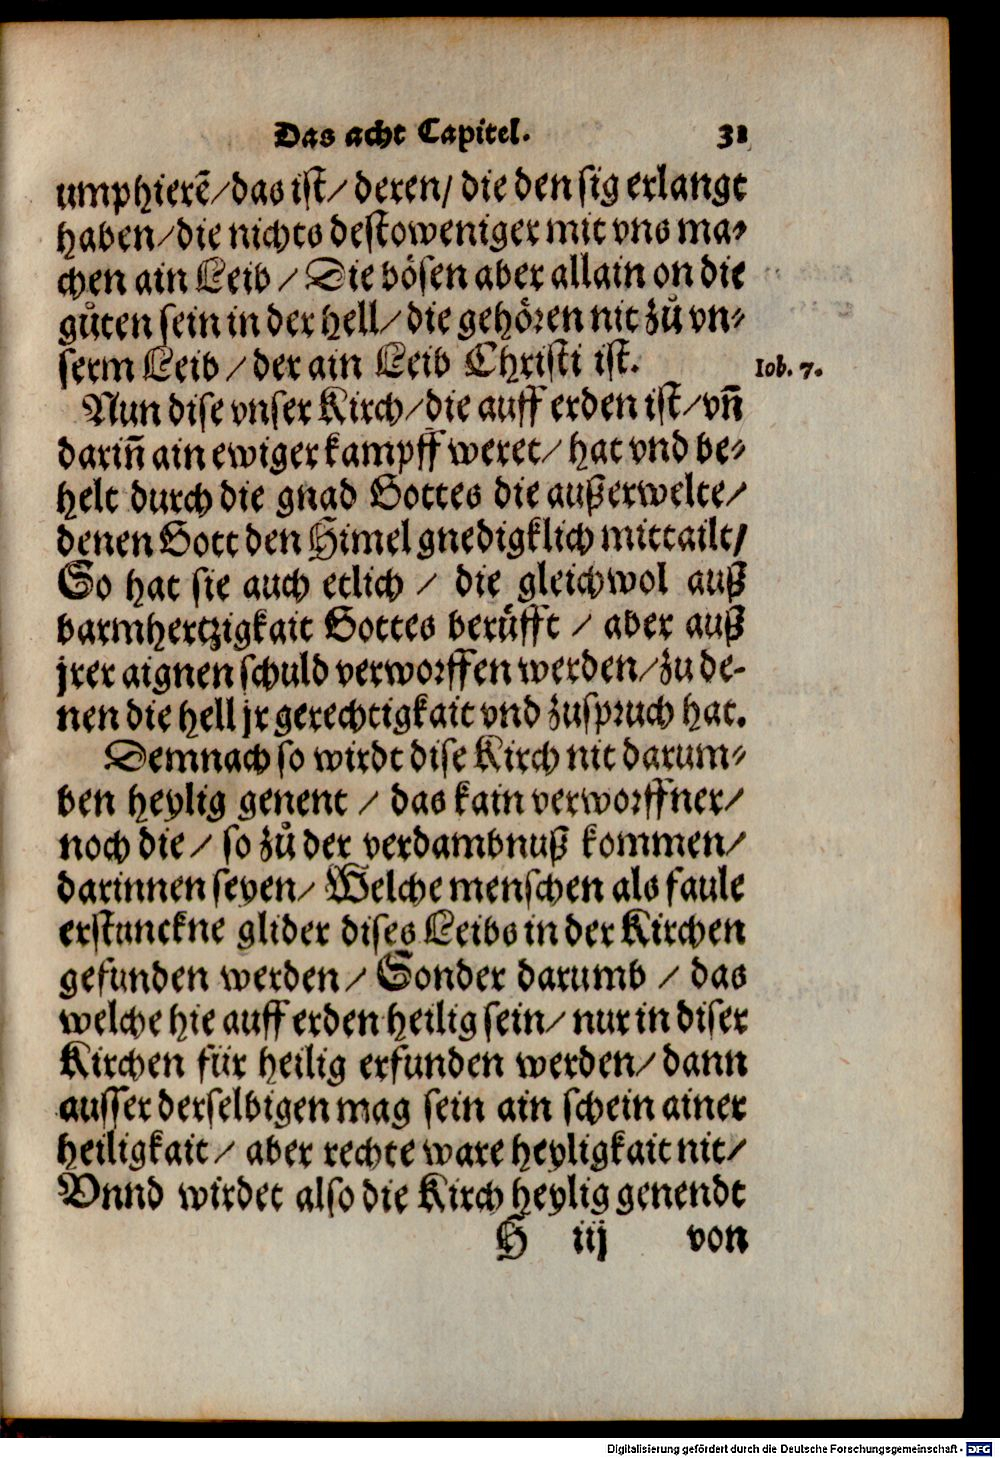 Das acht Capitel. 31
umphierẽ/das ist/ deren/ die den sig erlangt
haben/die nichts destoweniger mit vns ma-
chen ain Leib / Die bösen aber allain on die
gůten sein in der hell/die gehören nit zů vn-
serm Leib / der ain Leib Christi ist.
Iob. 7.
Nun dise vnser Kirch/die auff erden ist/vñ
dariñ ain ewiger kampff weret/ hat vnd be-
helt durch die gnad Gottes die außerwelte/
denen Gott den Himel gnedigklich mittailt/
So hat sie auch etlich / die gleichwol auß
barmhertzigkait Gottes berüfft / aber auß
jrer aignen schuld verworffen werden/zu de-
nen die hell jr gerechtigkait vnd zuspruch hat.
Demnach so wirdt dise Kirch nit darum-
ben heylig genent / das kain verworffner/
noch die / so zů der verdambnuß kommen/
darinnen seyen/ Welche menschen als faule
erstunckne glider dises Leibs in der Kirchen
gefunden werden/ Sonder darumb / das
welche hie auff erden heilig sein/ nur in diser
Kirchen für heilig erfunden werden/ dann
ausser derselbigen mag sein ain schein ainer
heiligkait/ aber rechte ware heyligkait nit/
Vnnd wirdet also die Kirch heylig genendt
H iij von
Digitalisierung gefördert durch die Deutsche Forschungsgemeinschaft - DFG